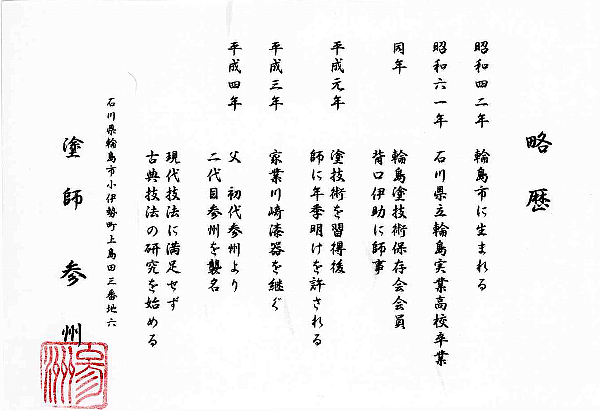 略歴
昭和四二年 輪島市に生まれる
昭和六一年 石川県立輪島実業高校卒業
同年 輪島塗技術保存会会員
背口伊助に師事
平成元年 塗技術を習得後
師に年季明けを許される
平成三年 家業川崎漆器を継ぐ
平成四年 父 初代参州より
二代目参州を襲名
現代技法に満足せず
古典技法の研究を始める
石川県輪島市小伊勢町上島田三番地六
塗師 参州
参州